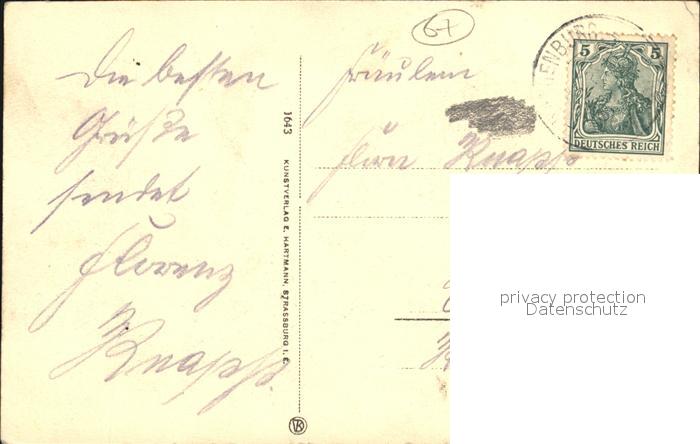 Die besten
Grüße
sendet
Florenz
Knapp.
1643
KUNSTVERLAG E. HARTMANN, STRASSBURG I. E.
67
Fräulein
Knapp
5 5
DEUTSCHES REICH
privacy protection
Datenschutz